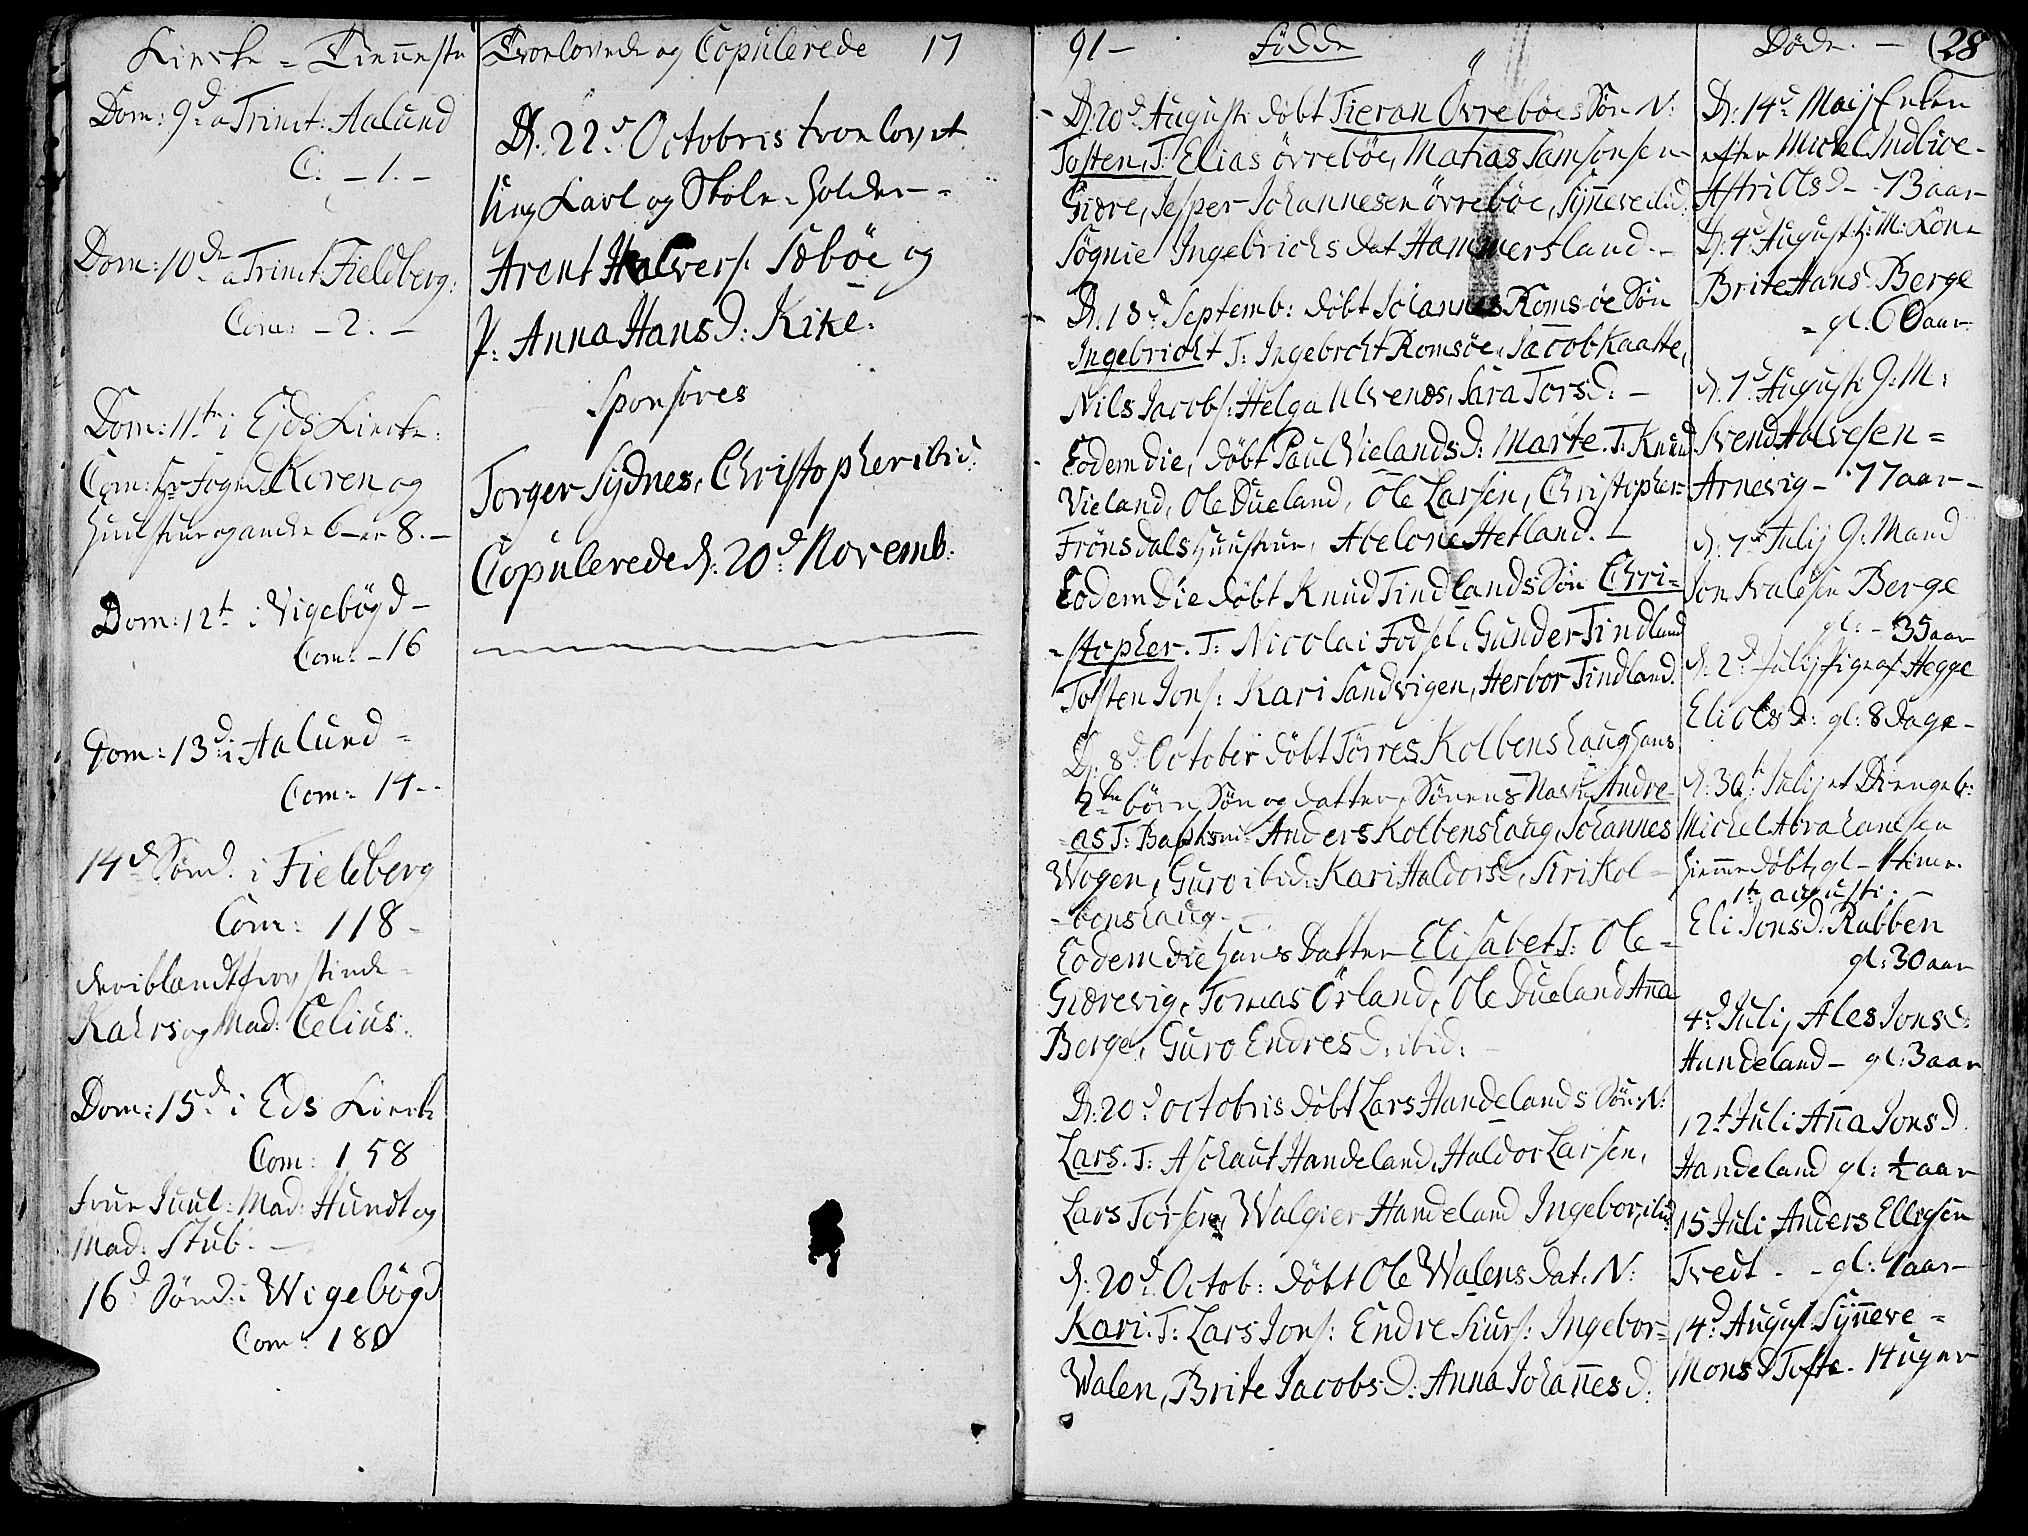 Kirke = Tienneste
Dom: 9d a Trinit: Aalund
C. - 1. -
Dom: 10de a Trinit: Fieldberg:
Com: - 2. -
Dom: 11te i Eids Kirke:
Com: Hr Foged Koren og
Huustrue 6 8. -
Dom: 12t i Vigebøgd -
Com: - 16
Dom: 13d i Aalund -
Com: 14 -
14d Sønd. i Fieldberg
Com: 118 -
deriblandt Provstinde -
Kahrs og Mad: Celius.
Dom: 15de i Eds Kirke
Com: 158
Frue Juul: Mad: Hundt og
Mad: Stub. -
16d Sønd: i Wigebøgd
Com: 180
Trolovede og Copulerede 17
D. 22d Octobris trolovet
Ung Karl og Skole-Holder -
Arent Halvers: Sæbøe og
P: Anna Hans D: Kike:
Sponsores
Torger Sydnes, Christopher ibid:
Copulerede d. 20d Novemb:
91 - Fødde
D. 20d Augusti døbt Tieran Øvrebøes Søn N:
Tosten, T: Elias øvrebøe, Matias Samsonsen
Giære, Jesper Johannesen øvrebøe, Synneve ibid.
Søgnie Ingebrichs dat Hammersland. -
D. 18d Septemb: døbt Johannes Romsøe Søn
Ingebricht T: Ingebrcht Romsøe, Jacob Kaatte,
Nils Jacobs: Helga Ulvenæs, Sara Tors D. -
Eodem die, døbt Paul Vielands D: Marte. T. Knud
Vieland, Ole Dueland, Ole Larsen, Christopher
Frønsdals Huustrue, Abelone Hetland. -
Eodem Die døbt Knud Tindlands Søn Chri=
=stopher. T: Nicolai Fodsel, Gunder Tindland
Tosten Jons: Kari Sandvigen, Herbor Tindland.
D. 8d October døbt Tørres Kolbenshaug Hans
2de børn Søn og datter, Sønens Navn Andre
=as T: Anders Kolbenshaug, Johannes
Wogen, Guro ibid: Kari Haldors D, Siri Kol -
- benshaug -
Eodem die Hans Datter Elisabet T: Ole -
Giærevig, Tomas Ørland, Ole Dueland Anna
Berge, Guro Endres D: ibid: -
D. 20d octobris døbt Lars Handelands Søn: N:
Lars. T: Aschaut Handeland, Haldor Larsen,
Lars Torsen, Walgier Handeland Ingebor, ibid
d. 20d Octob: døbt Ole Walens dat: N:
Kari. T: Lars Jons: Endre Siurs: Ingebor=
Walen, Brite Jacobs D: Anna Johannes D.
Døde. - 28
D: 14d Maij Enken
efter Mickel Indlioe -
Astri Ols D - 73 aar
D. 4d August: G: M: Kone
Brite Hans D Berge
- gl. 60 aar
d. 7d Augusti G: M:
Svend Halvesen =
Arnevig - 77 aar -
d. 7d Julij G: Mand
Jon Berge
gl: - 35 aar
d. 2d Julij Pige af Hegge
Eli Ols D: gl: 8 Dage -
d. 30t Julij et Drengeb:
Michel Abrahamsen
Hiemmedøbt, gl - 1 time
1te augusti: -
Eli Jons D: Rabben
gl: 30 aar
4d Julij Ales Jons D:
Handeland - gl: 3 aar
12t Juli Anna Jons D.
Handeland gl: ½ aar
15 Juli Anders Ellefsen
Tvedt - - gl: 1 aar -
14d August Synneve =
Mons D Tofte. 14 uger